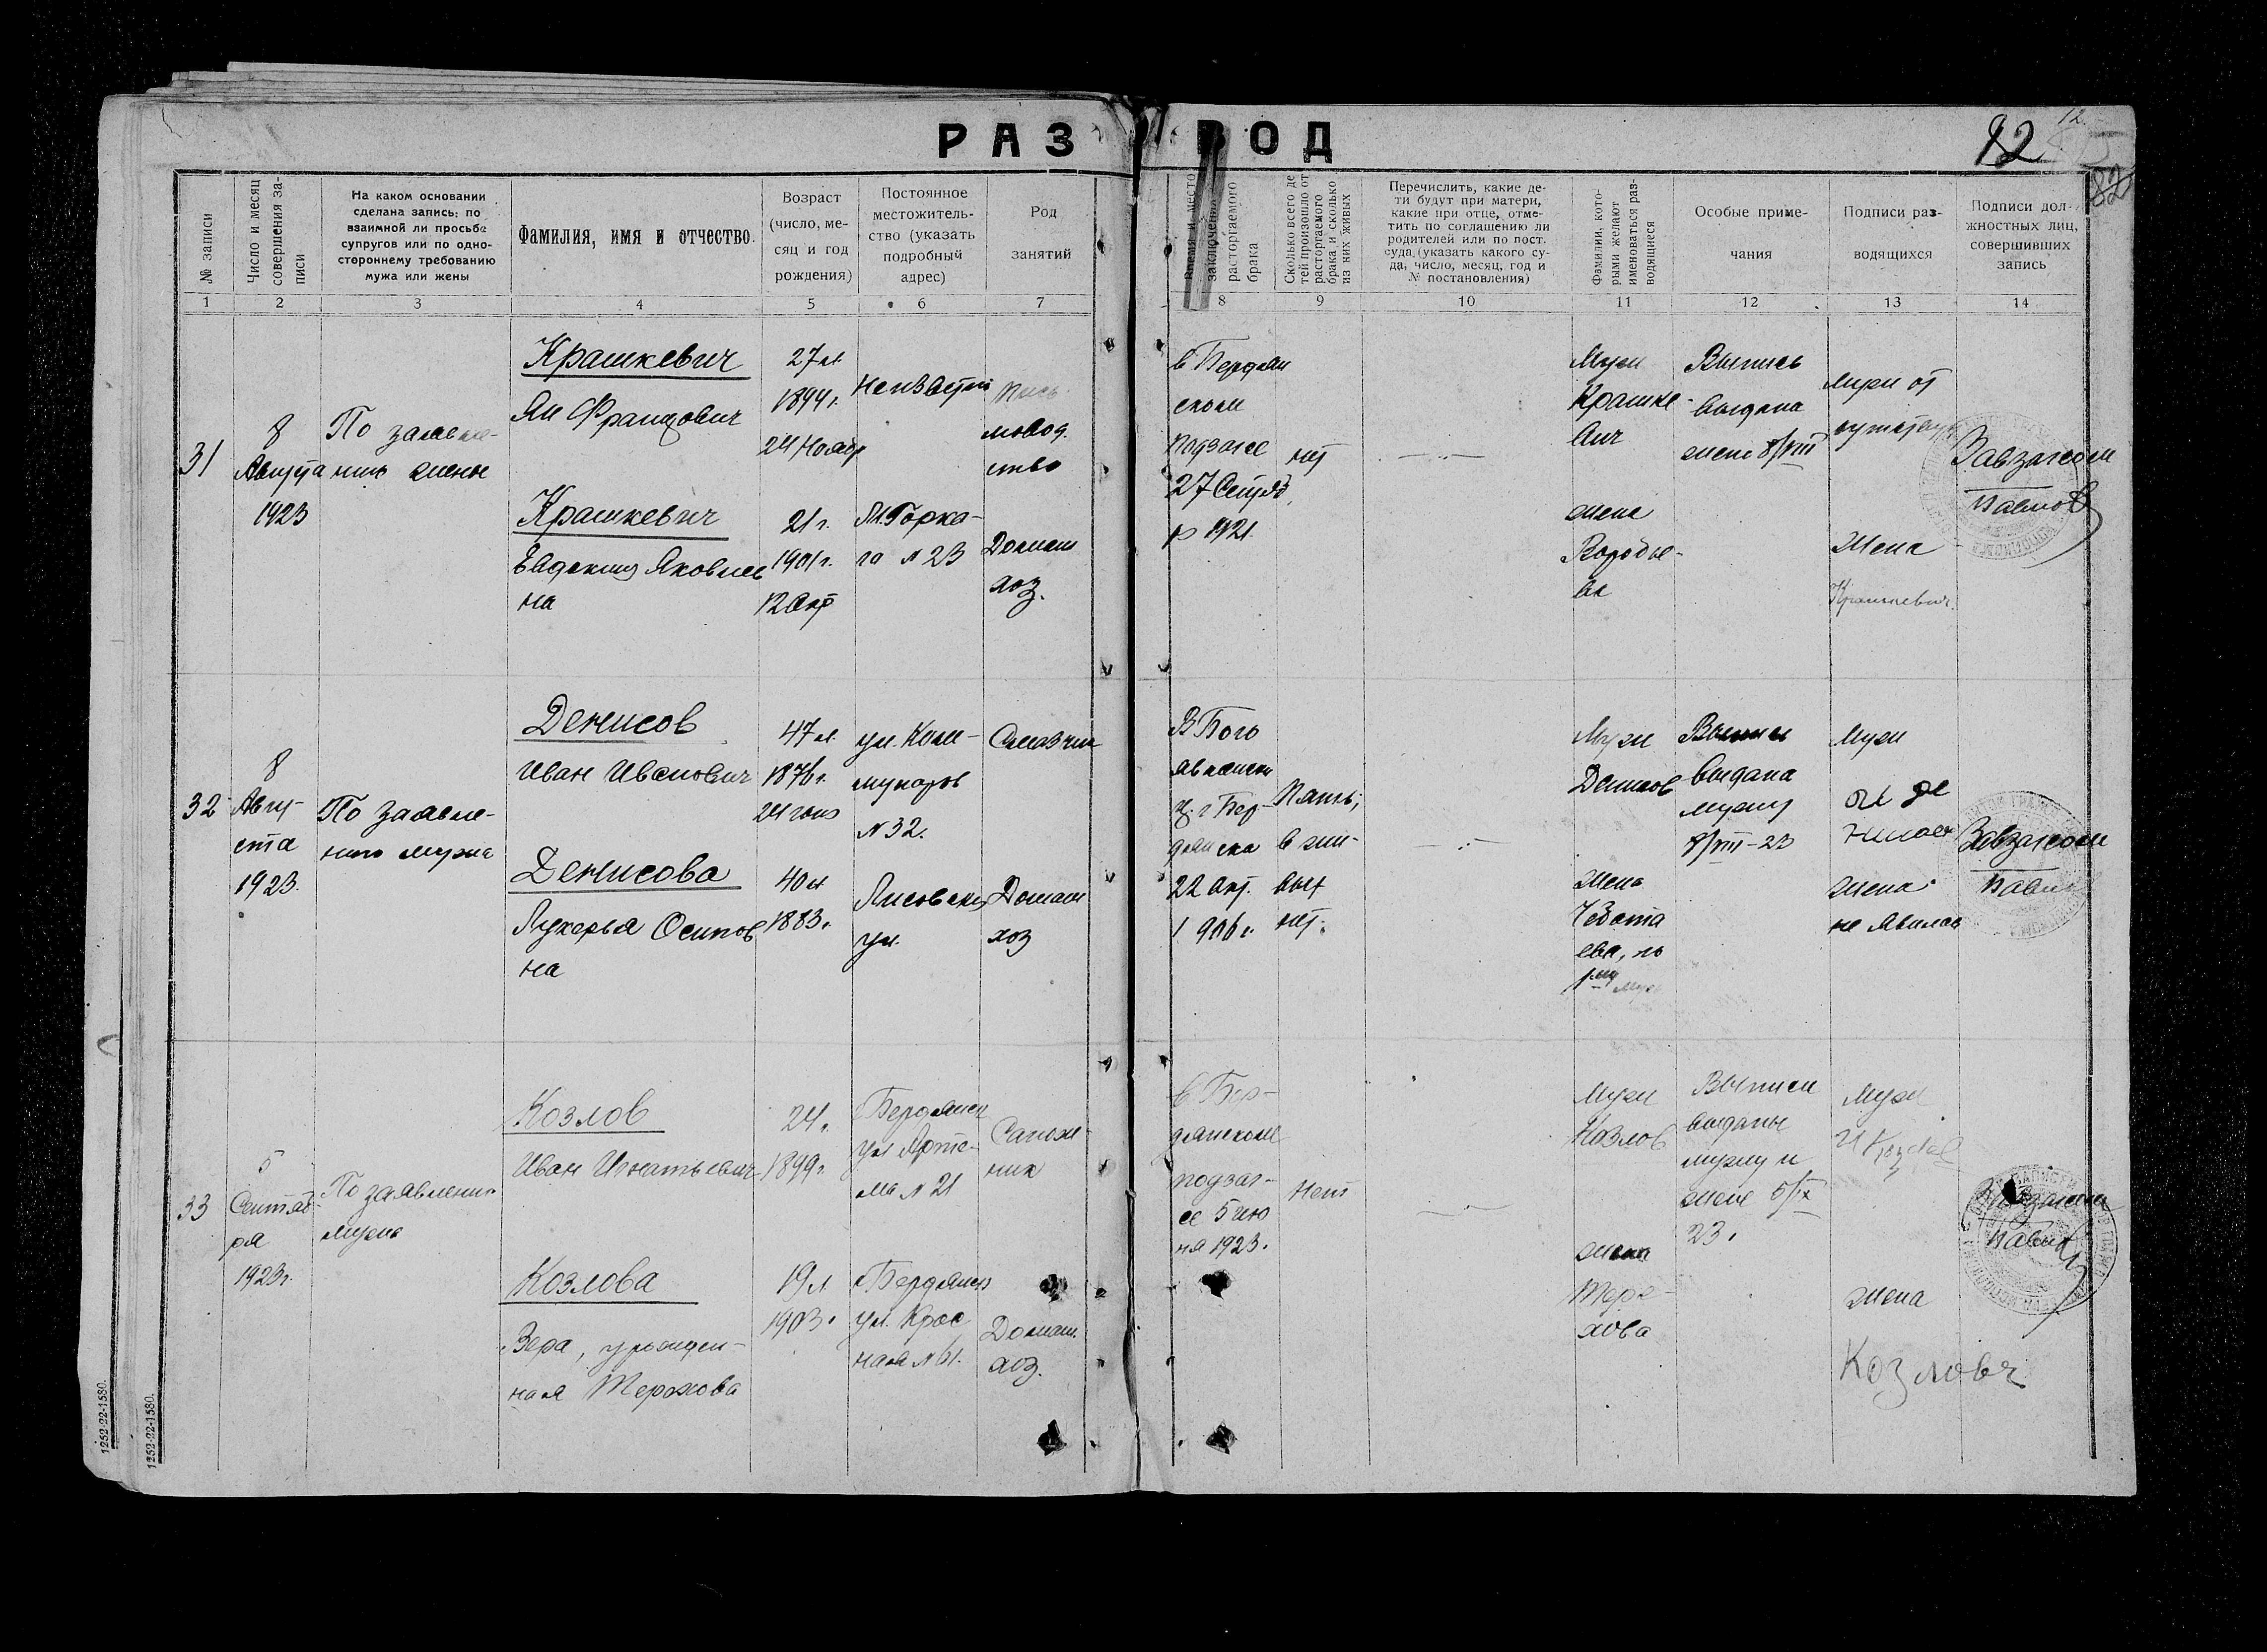 РАЗВОД
12.
82
82
№ записи
Число и месяц
совершения за-
писи
На каком основании
сделана запись: по
взаимной ли просьбе
супругов или по одно-
стороннему требованию
мужа или жены
Фамилия, имя и отчество.
Возраст
(число, ме-
сяц и год
рождения)
Постоянное
местожитель-
ство (указать
подробный
адрес)
Род
занятий
Время и место
заключения
расторгаемого
брака
Сколько всего де
тей произошло от
расторгаемого
брака и сколько
из них живых
Перечислить, какие де-
ти будут при матери,
какие при отце, отме-
тить по соглашению ли
родителей или по пост.
суда, (указать какого су-
да, число, месяц, год и
№ постановления)
Фамилии, кото-
рыми желают
именоваться раз-
водящиеся
Особые приме-
чания
Подписи раз-
водящихся
Подписи дол-
жностных лиц,
совершивших
запись
1 2 3 4 5 6 7 8 9 10 11 12 13 14
31
8
Августа
1923
По заявле-
нию жены
Крашкевич
Ян Францович
27 л.
1894 г.
24 Ноября
Неизвестно
Пись
мовод.
ство
Крашкевич
Евдокия Яковлев
на
21 г.
1901 г.
12 Окт
Ул. Горько-
го № 23
Домаш
хоз.
в Бердян
ском
подзагсе
27 Сентяб
р 1921.
нет
Муж
Крашке-
вич
жена
Воробье-
ва
Выпись
выдана
жене 8/VIII
муж от
сутствует
Жена
Крашкевич
Завзагсом
Павлов
32
8
Авгу-
ста
1923.
По заявле-
нию мужа
Денисов
Иван Иванович
47 л.
1876 г.
ул. Ком-
мунаров
№ 32.
Смазчик
Денисова
Лукерья Осипов
на
40 л
1883 г.
Лисовская
ул.
Домаш
хоз
В Бого
явленск
ц. г Бер-
дянска
22 Окт.
1906 г.
Пять,
в жи-
вых
нет.
Муж
Денисов
Жена
Чебота
ева, по
1му мужу
Выпись
выдана
мужу
8/VIII-23
Муж
Жена
не явилась
Завзагсом
Павлов
33
5
Сентяб-
ря
1923 г.
По заявлению
мужа
Козлов
Иван Игнатьевич
24 г.
1899 г.
Бердянск
ул Арте-
ма № 21
Сапож-
ник
Козлова
Вера, урожден-
ная Терехова
19 л
1903 г.
Бердянск
ул. Крас
ная № 61.
Домаш.
хоз.
в Бер-
дянском
подзаг-
се 5 ию
ня 1923 г.
Нет
Муж
Козлов
жена
Тере-
хова
Выписи
выданы
мужу и
жене 5/IX
23 г.
Муж
И Козлов
Жена
Козлова
Завзагсом
Павлов
1252-22-1580.
1252-22-1580.